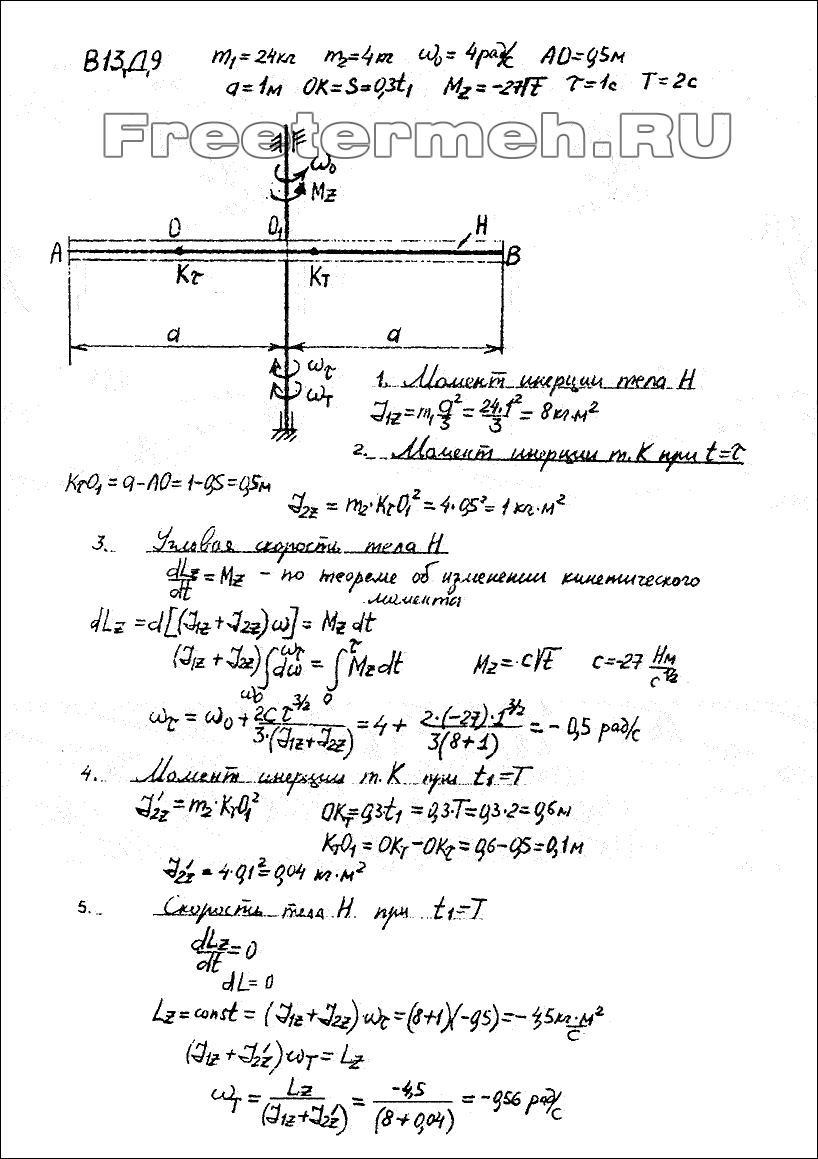 В13,Д9 m₁=24кг m₂=4кг ω₀=4рад/с AO=0,5м
a=1м OK=S=0,3t₁ Mz=-27√t τ=1c T=2c
Freetermeh.RU
ω₀
Mz
O O₁ H
A B
Kτ KT
a a
ωτ
ωT
1. Момент инерции тела H
J₁z=m₁a²/3=24·1²/3=8кг·м²
2. Момент инерции т.K при t=τ
KτO₁=a-AO=1-0,5=0,5м
J₂z=m₂·KτO₁²=4·0,5²=1кг·м²
3. Угловая скорость тела H
dLz/dt=Mz - по теореме об изменении кинетического
момента
dLz=d[(J₁z+J₂z)ω]=Mz dt
(J₁z+J₂z)∫ω₀^ωτ dω=∫₀^τ Mz dt Mz=c√t c=-27 Нм/с^1/2
ωτ=ω₀+2cτ^3/2/3·(J₁z+J₂z)=4+2·(-27)·1^3/2/3(8+1)=-0,5 рад/с
4. Момент инерции т.K при t₁=T
J₂z'=m₂·KTO₁² OKT=0,3t₁=0,3·T=0,3·2=0,6м
KTO₁=OKT-OKτ=0,6-0,5=0,1м
J₂z'=4·0,1²=0,04 кг·м²
5. Скорость тела H при t₁=T
dLz/dt=0
dL=0
Lz=const=(J₁z+J₂z)ωτ=(8+1)(-0,5)=-4,5кг·м²/с
(J₁z+J₂z')ωT=Lz
ωT=Lz/(J₁z+J₂z')=-4,5/(8+0,04)=-0,56 рад/с